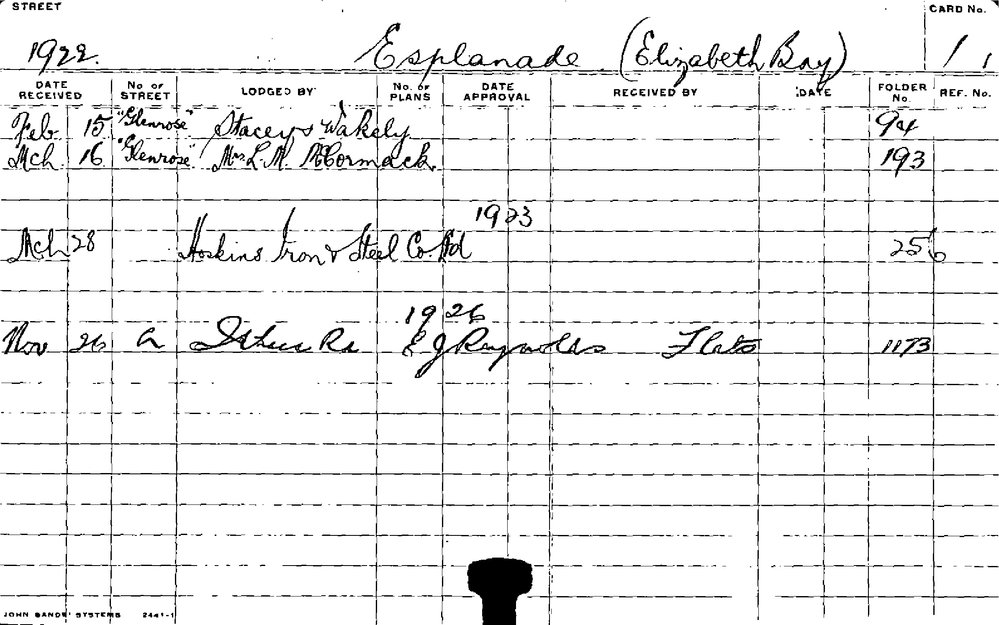 STREET CARD No.
1922. Esplanade. (Elizabeth Bay) 1
DATE RECEIVED No. OF STREET LODGED BY No. OF PLANS DATE APPROVAL RECEIVED BY DATE FOLDER No. REF. No.
Feb. 15 "Glenrose" Staceys Wakely 94
Mch 16 "Glenrose" Mrs L. M. McCormack. 193
1923
Mch 28 Hoskins Iron & Steel Co. Ltd 256
1926
Nov 26 Rd E J Reynolds Flats 1173
JOHN SANDS' SYSTEMS 2441-1